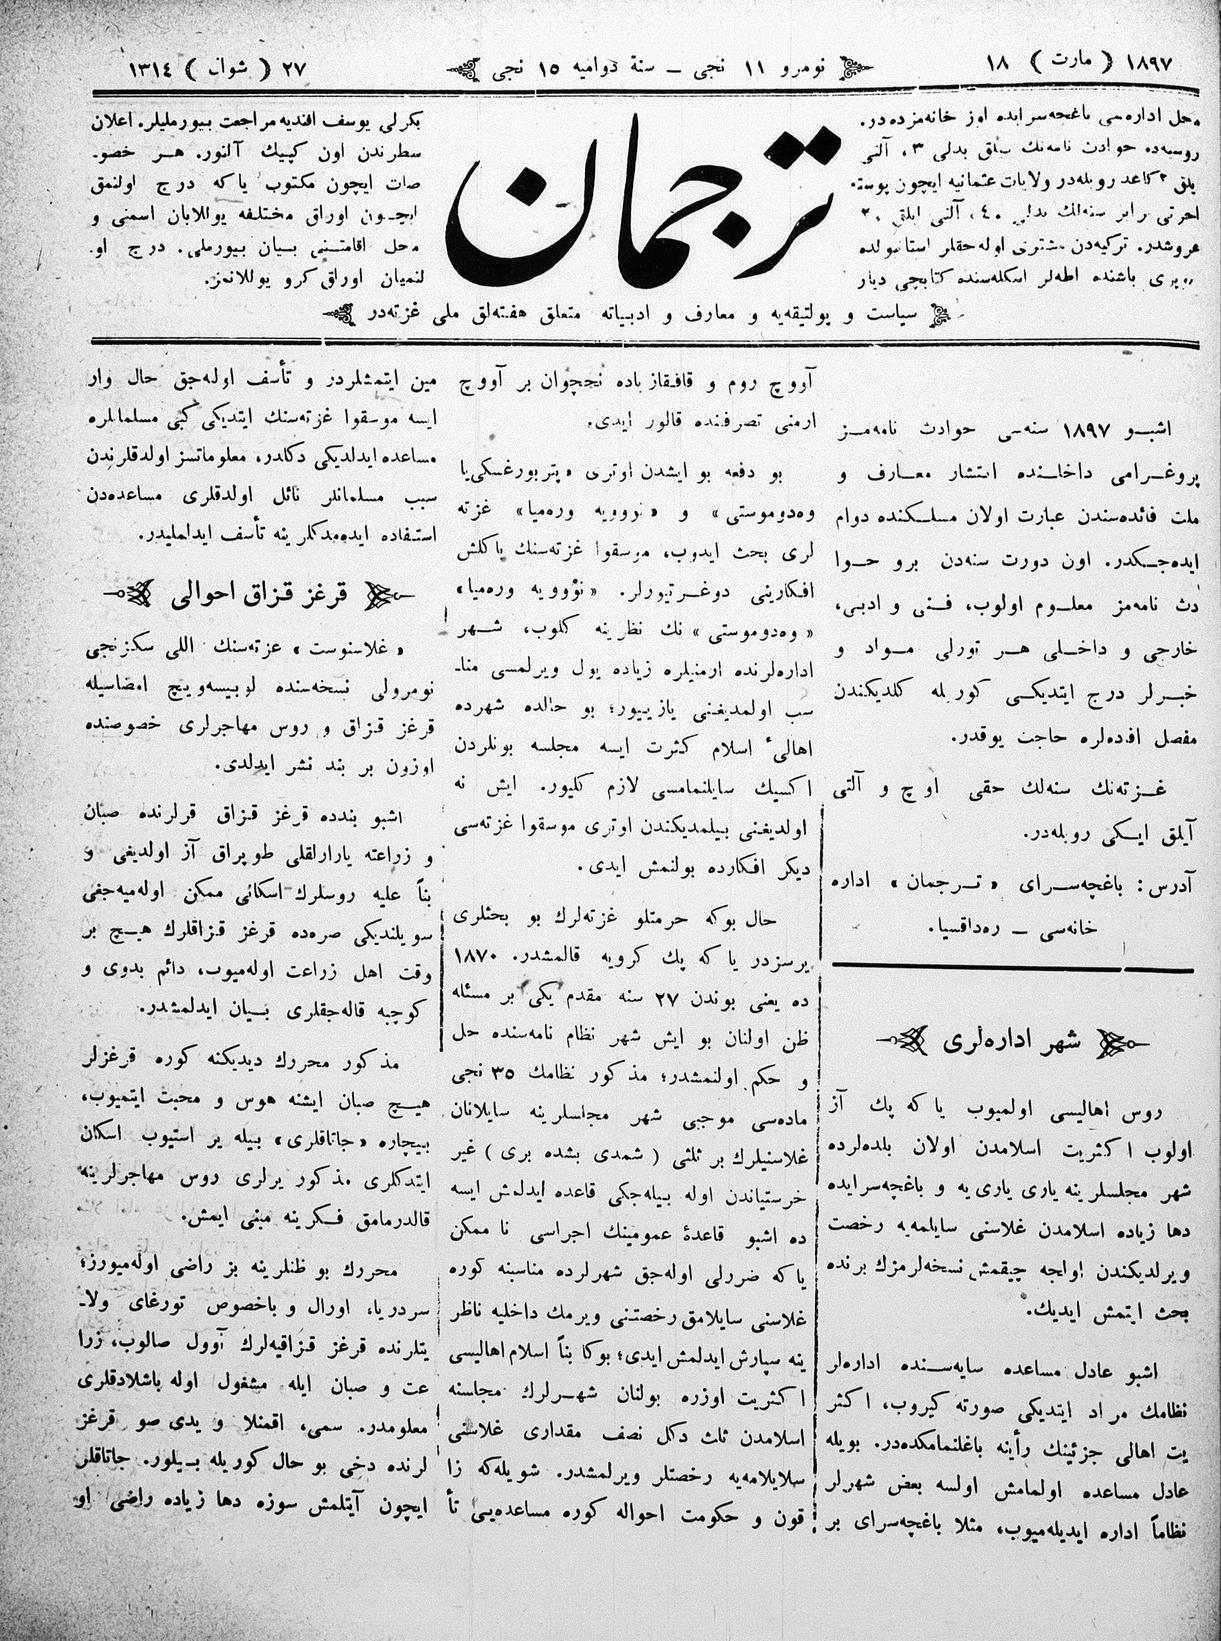 ١٨٩٧ ( مارت ) ١٨
نومرو ١١ نجی ــ سنهٔ دوامیه ١٥ نجی
٢٧ ( شوال ) ١٣١٤
محل اداره‌سی باغچه‌سرایده اوز خانه‌مزده در.
روسیه‌ده حوادث نامه‌نك یللق بدلی ٣، آلتی
یلق ٢ كاغد روبله‌در ولایات عثمانیه ایچون پوسته
اجرتی برابر سنه‌لك بدلی ٤٠، آلتی ایلق ٢٠
غروشدر. تركیه‌دن مشتری اوله‌جقلر استانبولده
باشنده اطه‌لر اسكله‌سنده كتابچی دیار
ترجمان
بكرلی یوسف افندیه مراجعت بیورملیلر. اعلان
سطرندن اون كپیك آلنور. هــر خصوـ
صات ایچون مكتوب یاكه درج اولنمق
ایچــون اوراق مختلفه یوللایان اسمنی و
محل اقامتــنی بــیان بیورملی. درج اوـ
لنمیان اوراق كرو یوللانمز.
سیاست و پولتیقه‌یه و معارف و ادبیاته متعلق هفته‌لق ملی غزته‌در
اشبــو ١٨٩٧ سنه‌سی حوادث نامه‌مــز
پروغــرامی داخلــنده انتشار معــارف و
ملت فائده‌سندن عبارت اولان مسلــكنده دوام
ایده‌جــكدر. اون دورت سنه‌دن برو حــوا
دث نامه‌مز معلــوم اولوب، فــنی و ادبی،
خارجی و داخــلی هــر تورلی مــواد و
خبــرلر درج ایتدیكــی كوریله كلدیكندن
مفصل افاده‌لره حاجت یوقدر.
غــزته‌نك سنه‌لك حقی اوچ و آلتی
آیلق ایــكی روبله‌در.
آدرس: باغچه‌ســرای « تــرجمان » اداره
خانه‌سی ــ ره‌داقسیا.
شهر اداره‌لری
روس اهالیسی اولمیوب یاكه پك آز
اولوب اكثریت اسلامدن اولان بلده‌لرده
شهر مجلسلرینه یاری یاری یه و باغچه‌سرایده
دها زیاده اسلامدن غلاسنی سایلمه‌یه رخصت
ویرلدیكندن اولجه چیقمش نسخه‌لرمزك برنده
بحث ایتمش ایدیك.
اشبو عادل مساعده سایه‌ســنده اداره‌لر
نظامك مراد ایتدیكی صورته كیروب، اكثر
یت اهالی جزئینك رأینه باغلنمامكده‌در. بویله
عادل مساعده اولمامش اولسه بعض شهرلر
نظاماً اداره ایدیله‌میوب، مثلا باغچه‌سرای بر
آووچ روم و قافقازیاده نخچوان بر آووچ
ارمنی تصرفنده قالور ایدی.
بو دفعه بو ایشدن اوتری « پتربورغسكی‌یا
وه‌دوموستی » و « نوویه وره‌میا » غزته
لری بحث ایدوب، موسقوا غزته‌سنك یاكلش
افكارینی دوغــرتیورلر. « نوویه وره‌میا »
« وه‌دوموستی » نك نظرینه كلوب، شــهر
اداره‌لرنده ارمنیلره زیاده یول ویرلمسی مناـ
سب اولمدیغنی یازیـیور؛ بو حالده شهرده
اهالیٔ اسلام كثرت ایسه مجلسه بونلردن
اكسیك سایلنمامسی لازم كلیور. ایش نه
اولدیغنی بیلمدیكندن اوتری موسقوا غزته‌سی
دیكر افكارده بولنمش ایدی.
حال بوكه حرمتلو غزته‌لرك بو بحثلری
یرسزدر یاكه پك كرویه قالمشدر. ١٨٧٠
ده یعنی بوندن ٢٧ سنه مقدم یكی بر مسئله
ظن اولنان بو ایش شهر نظام نامه‌سنده حل
و حكم اولنمشدر؛ مذكور نظامك ٣٥ نجی
ماده‌سی موجبی شهر مجلسلرینه سایلانان
غلاسنیلرك بر ثلثی ( شمدی بشده بری ) غیر
خرستیاندن اوله بیله‌جكی قاعده ایدلمش ایسه
ده اشبو قاعدهٔ عمومینك اجراسی نا ممكن
یاكه ضررلی اوله‌جق شهرلرده مناسبنه كوره
غلاسنی سایلامق رخصتنی ویرمك داخلیه ناظر
ینه سپارش ایدلمش ایدی؛ بوكا بناً اسلام اهالیسی
اكثریت اوزره بولنان شهــرلرك مجلسنه
اسلامدن ثلث دكل نصف مقداری غلاسنی
سایلامه‌یه رخصتلر ویرلمشدر. شویله‌كه زا
قون و حكومت احواله كوره مساعده‌یی تأ
مین ایتمشلردر و تأسف اوله‌جق حال وار
ایسه موسقوا غزته‌سنك ایتدیكی كبی مسلمانلره
مساعده ایدلدیكی دكلدر، معلوماتسز اولدقلرندن
سبب مسلمانلر نائل اولدقلری مساعده‌دن
استفاده ایده‌مدكلرینه تأسف ایدلملیدر.
قرغز قــزاق احوالی
« غلاسنوست » غزته‌سنك اللی سكزنجی
نومرولی نسخه‌سنده لوبیسه‌ویــچ امضاسیله
قرغز قــزاق و روس مهاجرلری خصوصنده
اوزون بر بند نشر ایدلدی.
اشبو بندده قرغز قــزاق قرلرنده صبان
و زراعته یارارلقلی طوپراق آز اولدیغی و
بناً علیه روسلرك اسكانی ممكن اوله‌میه‌جغی
سویلندیكی صره‌ده قرغز قــزاقلرك هیــچ بر
وقت اهل زراعت اوله‌میوب، دائم بدوی و
كوچبه قاله‌جقلری بــیان ایدلمشدر.
مذكور محررك دیدیكنه كوره قرغزلر
هیــچ صبان ایشنه هوس و محبت ایتمیوب،
بیچاره « جاتاقلری » بیله یر استیوب اسكان
ایتدكلری مذكور یرلری روس مهاجرلرینه
قالدرمامق فــكرینه مبنی ایمش.
محررك بو ظنلرینه بز راضی اوله‌میورز؛
سردریا، اورال و باخصوص تورغای ولاـ
یتلرنده قرغز قــزاقیه‌لرك آوول صالوب، زرا
عت و صبان ایله مشغول اوله باشلادقلری
معلومدر. سمی، اقمنلا و یدی صو قرغز
لرنده دخی بو حال كوریله بــیلور. جاتاقلر
ایچون آیتلمش سوزه دها زیاده راضی او